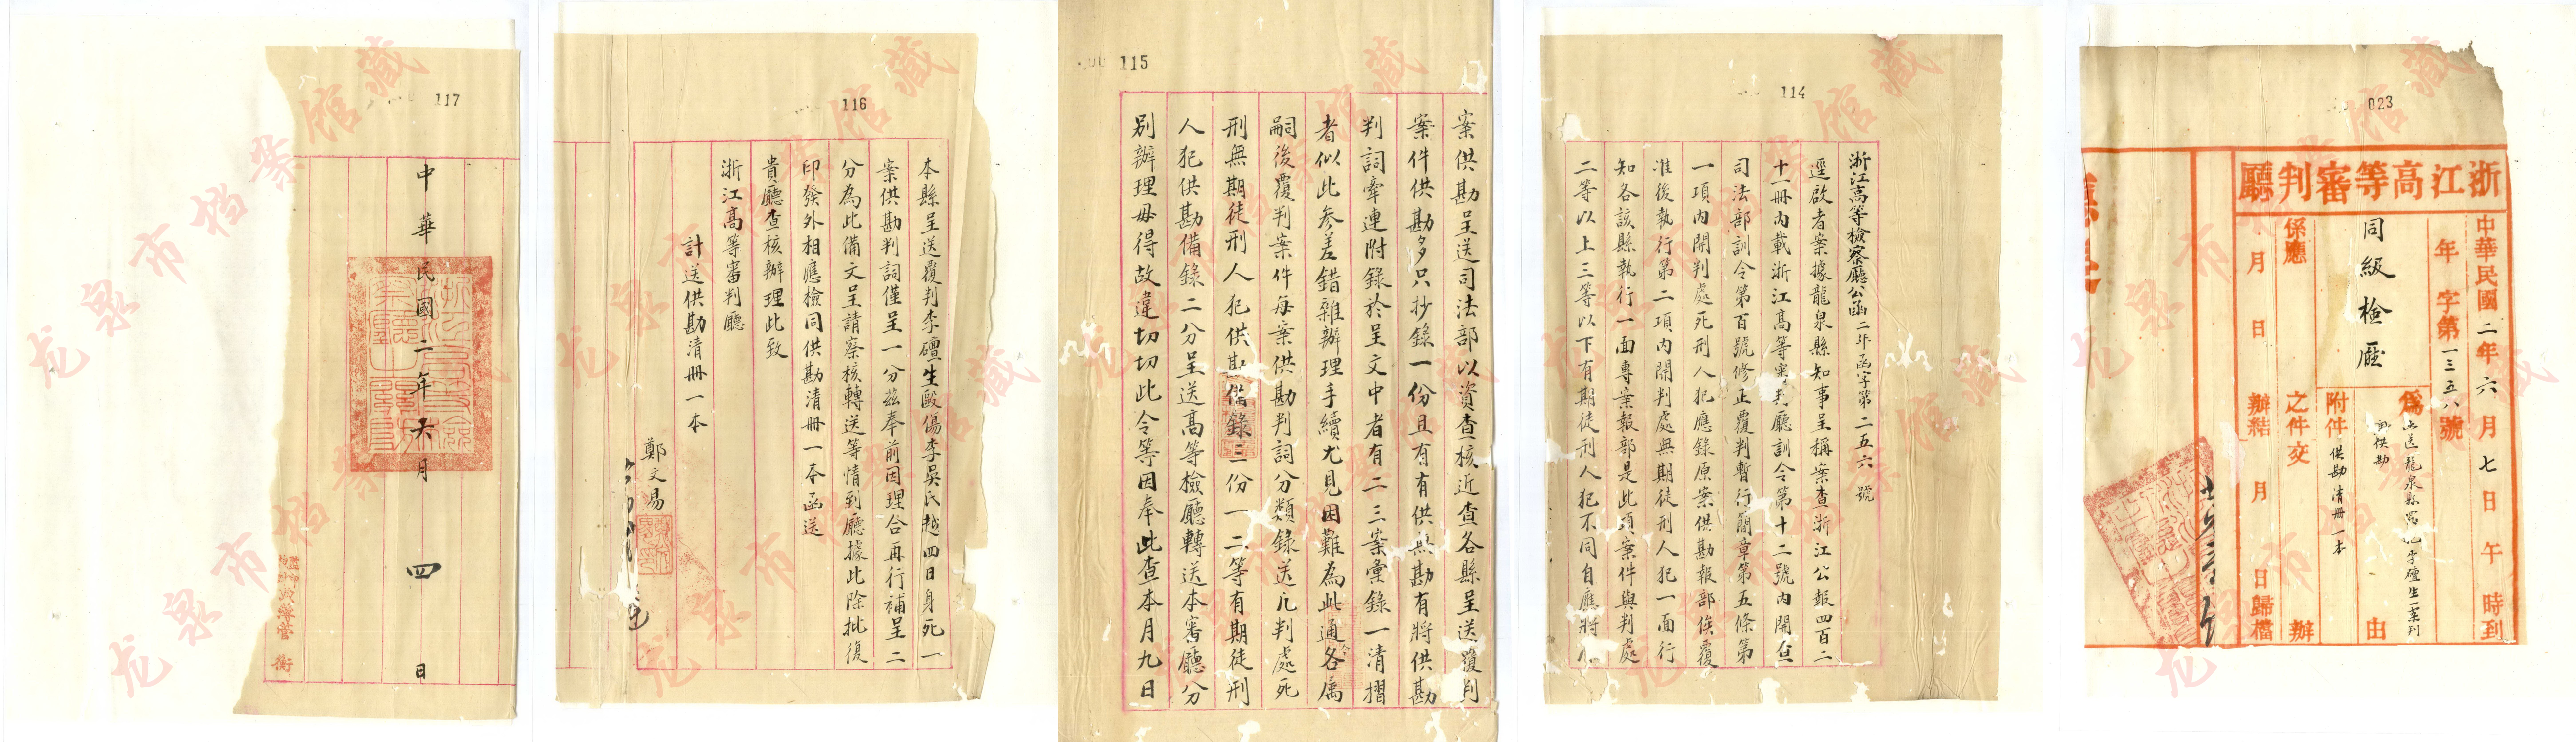 023
浙江高等審判廳
中華民國二年六月七日午時到
年字第一三五八號
為
李礶生一案判
供勘
由
同級檢廳
附件供勘清冊一本
係應
之件交
辦
月日辦結
月日歸檔
114
浙江高等檢察廳公函二年函字第二五六號
逕啟者案據龍泉縣知事呈稱案查浙江公報四百二
十一冊內載浙江高等審判廳訓令第十二號內開查
司法部訓令第百號修正覆判暫行簡章第五條第
一項內開判處死刑人犯應錄原案供勘報部俟覆
准後執行第二項內開判處無期徒刑人犯一面行
知各該縣執行一面專案報部是此項案件與判處
二等以上三等以下有期徒刑人犯不同自應將
115
案供勘呈送司法部以資查核近查各縣呈送覆判
案件供勘多只抄錄一份且有有供無勘有將供勘
判詞牽連附錄於呈文中者有二三案彙錄一清摺
者似此參差錯雜辦理手續尤見困難為此通令各屬
嗣後覆判案件每案供勘判詞分類錄送凡判處死
刑無期徒刑人犯供勘備錄三份一二等有期徒刑
人犯供勘備錄二分呈送高等檢廳轉送本審廳分
別辦理毋得故違切切此令等因奉此查本月九日
116
本縣呈送覆判李礶生毆傷李吳氏越四日身死一
案供勘判詞僅呈一分茲奉前因理合再行補呈二
分為此備文呈請察核轉送等情到廳據此除批復
印發外相應檢同供勘清冊一本函送
貴廳查核辦理此致
浙江高等審判廳
計送供勘清冊一本
鄭文易
117
中華民國二年六月四日
龙泉市档案馆藏
龙泉市档案馆藏
龙泉市档案馆藏
龙泉市档案馆藏
龙泉市档案馆藏